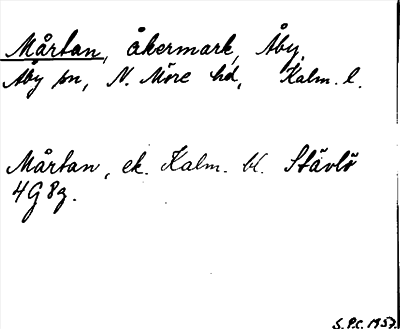 Mårtan, åkermark, Åby,
Åby sn, N. Möre hd, Kalm. l.
Mårtan, ek. Kalm. bl. Stävlö
4G 8g.
S.P.C. 1957.